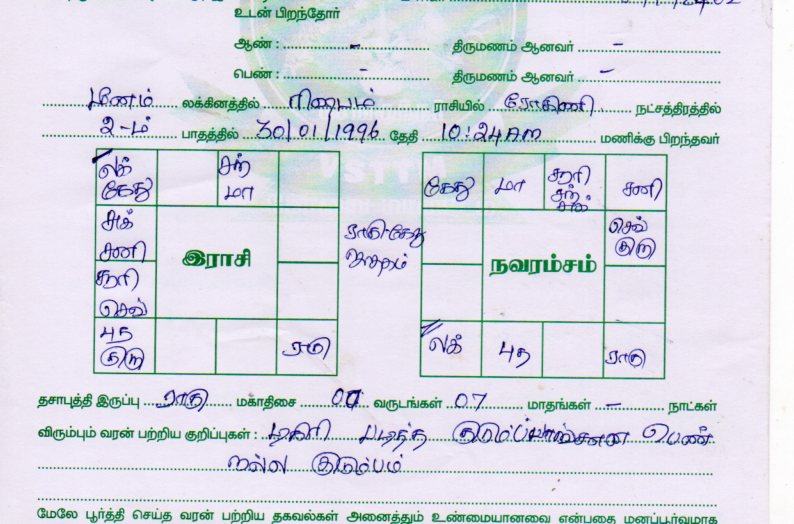 உடன் பிறந்தோர்
ஆண் : - திருமணம் ஆனவர் -
பெண் : - திருமணம் ஆனவர் -
மீனம் லக்கினத்தில் ரிஷபம் ராசியில் ரோகிணி நட்சத்திரத்தில்
2-ம் பாதத்தில் 30/01/1996 தேதி 10:24AM மணிக்கு பிறந்தவர்
லக் கேது சந் மா
சுக் சனி
சூரி செவ்
புத குரு ராகு
இராசி
ராகு-கேது
கேது மா சூரி சந் சுக் சனி
செவ் குரு
லக் புத ராகு
நவரம்சம்
தசாபுத்தி இருப்பு ராகு மகாதிசை வருடங்கள் 07 மாதங்கள் - நாட்கள்
விரும்பும் வரன் பற்றிய குறிப்புகள் : படித்த பெண்
நல்ல குடும்பம்
மேலே பூர்த்தி செய்த வரன் பற்றிய தகவல்கள் அனைத்தும் உண்மையானவை என்பதை மனப்பூர்வமாக